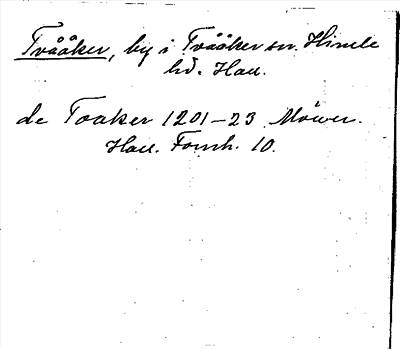 Tvååker, by i Tvååker sn. Himle
hd. Hall.
de Toaker 1201-23 Möwer.
Hall. Fornh. 10.